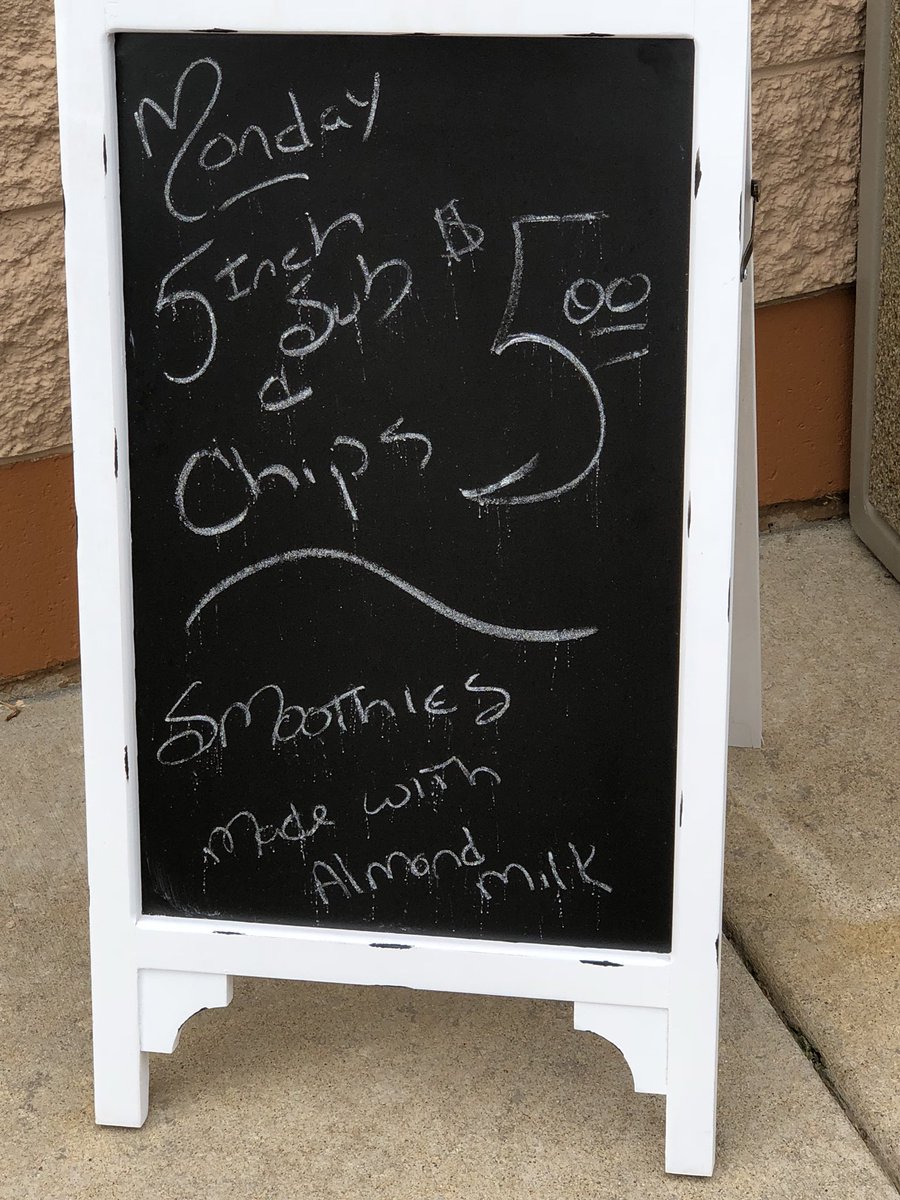 Monday
5 Inch Sub $5.00
&
Chips
Smoothies
Made with
Almond Milk